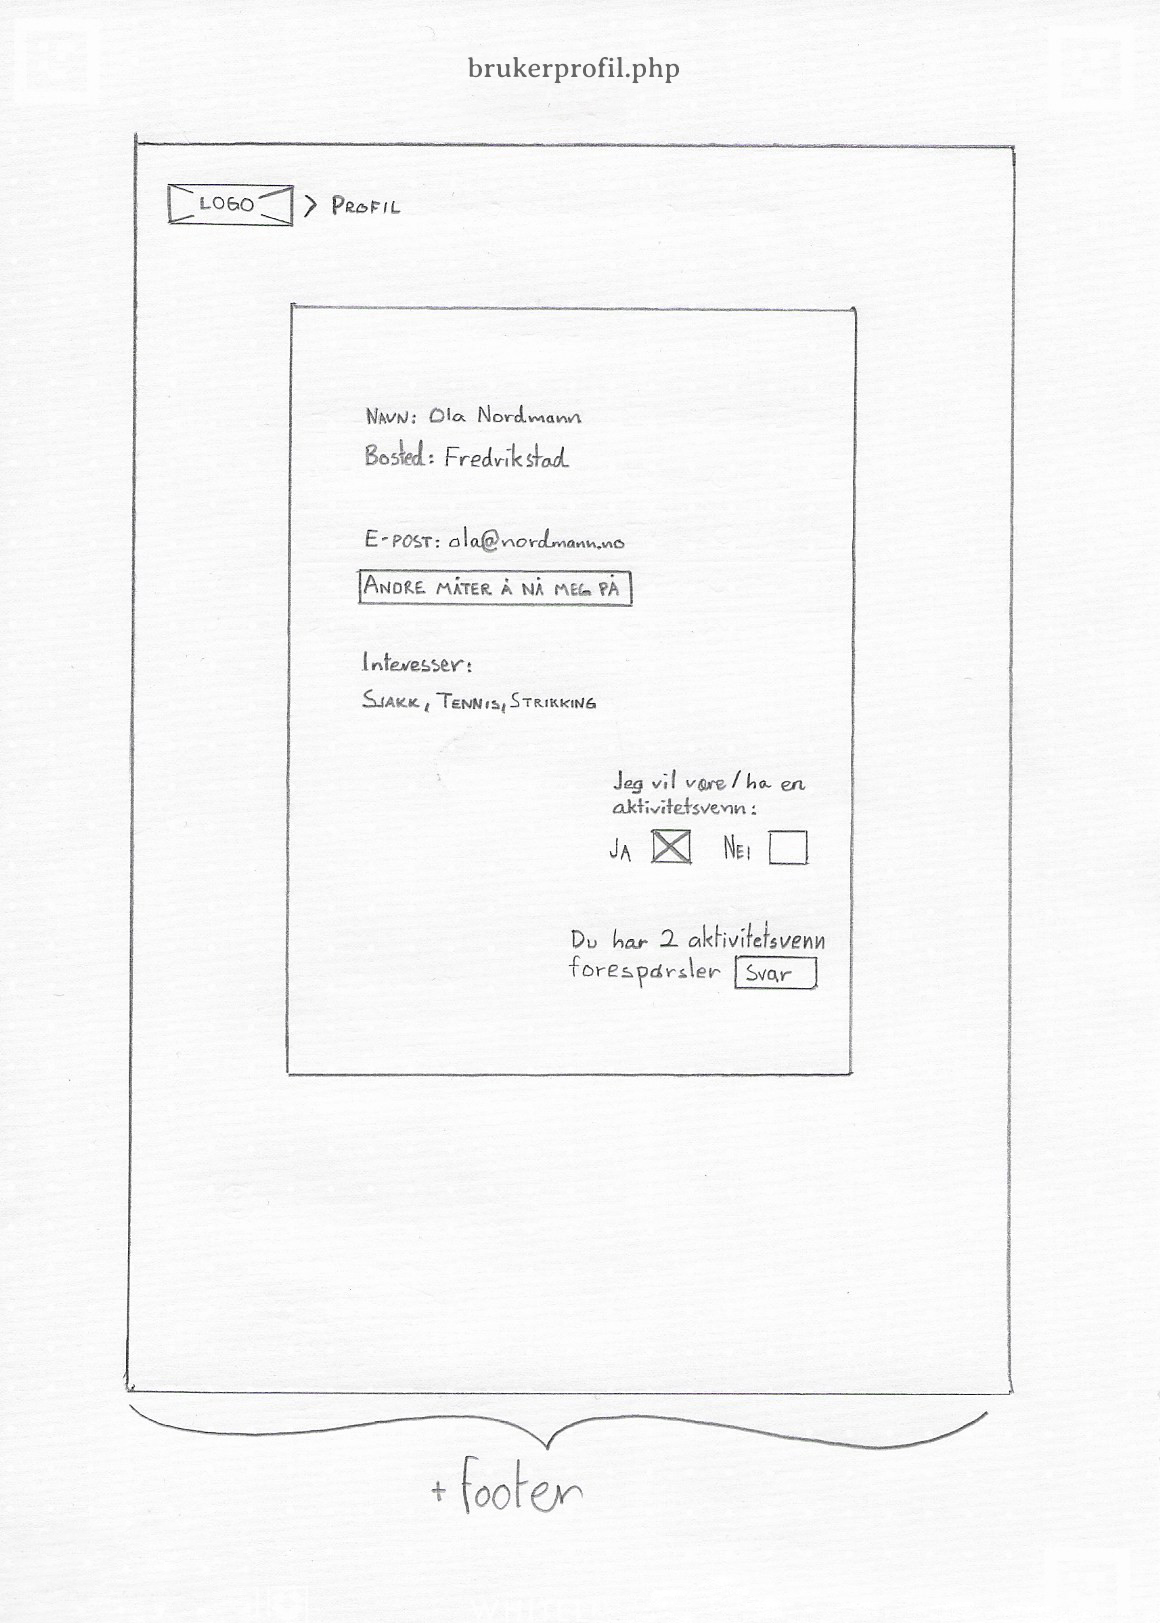 brukerprofil.php
LOGO > PROFIL
NAVN: Ola Nordmann
Bosted: Fredrikstad
E-POST: ola@nordmann.no
ANDRE MÅTER Å NÅ MEG PÅ
Interesser:
SJAKK, TENNIS, STRIKKING
Jeg vil være/ha en
aktivitetsvenn:
JA NEI
Du har 2 aktivitetsvenn
forespørsler Svar
+ footer